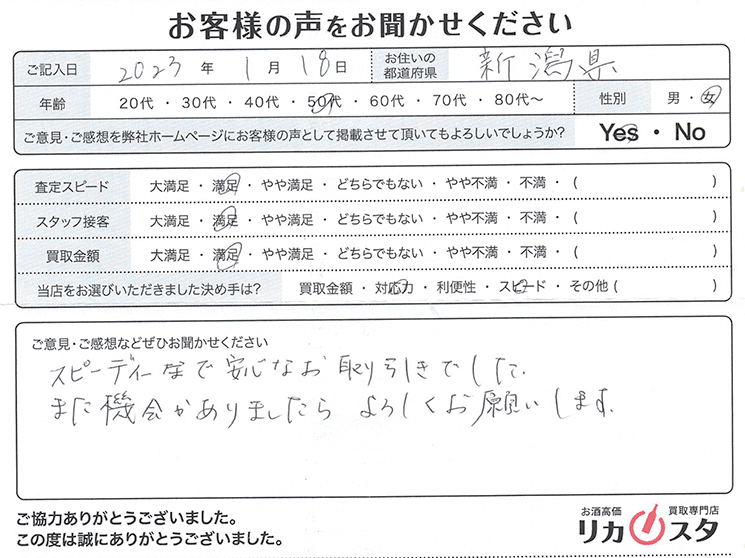 お客様の声をお聞かせください
ご記入日 2023 年 1 月 18 日 お住いの都道府県 新潟県
年齢 20代 ・ 30代 ・ 40代 ・ 50代 ・ 60代 ・ 70代 ・ 80代〜 性別 男 ・ 女
ご意見・ご感想を弊社ホームページにお客様の声として掲載させて頂いてもよろしいでしょうか? Yes ・ No
査定スピード 大満足 ・ 満足 ・ やや満足 ・ どちらでもない ・ やや不満 ・ 不満 ・ ( )
スタッフ接客 大満足 ・ 満足 ・ やや満足 ・ どちらでもない ・ やや不満 ・ 不満 ・ ( )
買取金額 大満足 ・ 満足 ・ やや満足 ・ どちらでもない ・ やや不満 ・ 不満 ・ ( )
当店をお選びいただきました決め手は? 買取金額 ・ 対応力 ・ 利便性 ・ スピード ・ その他 ( )
ご意見・ご感想などぜひお聞かせください
スピーディーなで安心なお取り引きでした。
また機会がありましたら よろしくお願いします。
ご協力ありがとうございました。
この度は誠にありがとうございました。
お酒高価 買取専門店
リカスタ